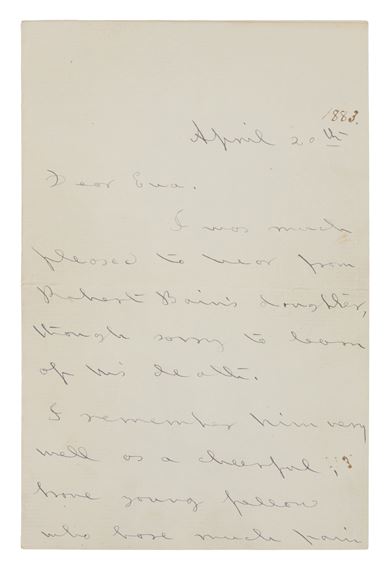 1883.
April 20th
Dear Eva.
I was much
pleased to hear from
Robert Bain's daughter,
though sorry to learn
of his death.
I remember him very
well as a cheerful,
brave young fellow
who bore much pain